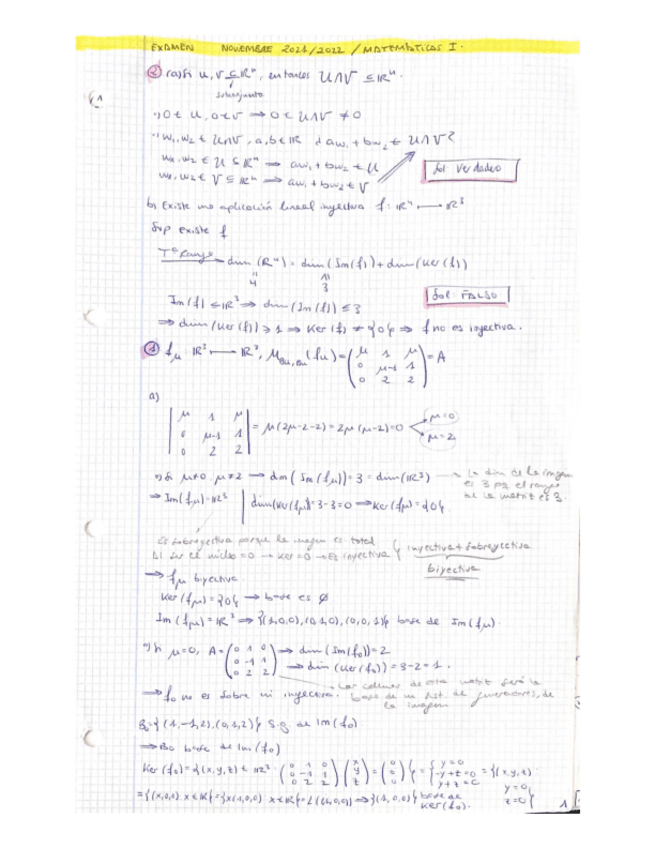 EXAMEN NOVIEMBRE 2021/2022 / MATEMÁTICAS I.
② (a) Si U, V ⊆ ℝⁿ, entonces U∩V ⊆ ℝⁿ.
subconjunto
·) 0 ∈ U, 0 ∈ V ⟹ 0 ∈ U∩V ≠ 0
·) w₁, w₂ ∈ U∩V, a, b ∈ ℝ ¿ aw₁ + bw₂ ∈ U∩V?
w₁, w₂ ∈ U ⊆ ℝⁿ ⟹ aw₁ + bw₂ ∈ U
w₁, w₂ ∈ V ⊆ ℝⁿ ⟹ aw₁ + bw₂ ∈ V
Sol: Verdadero
b) Existe una aplicación lineal inyectiva f: ℝ⁴ ⟶ ℝ³
Sup existe f
Tº Rango dim (ℝ⁴) = dim (Im(f)) + dim (Ker(f))
4 3
Im(f) ≤ ℝ³ ⟹ dim (Im(f)) ≤ 3
Sol: FALSO
⟹ dim (Ker(f)) ≥ 1 ⟹ Ker(f) ≠ {0} ⟹ f no es inyectiva.
① fμ: ℝ³ ⟶ ℝ³, M (fμ) = ( μ 1 μ
0 μ-1 1
0 2 2 ) = A
a)
| μ 1 μ
0 μ-1 1
0 2 2 | = μ(2μ-2-2) = 2μ(μ-2) = 0 μ=0 μ=2
·) Si μ≠0, μ≠2 ⟶ dim (Im(fμ)) = 3 = dim(ℝ³) ⟶ La dim de la imagen
es 3 pq el rango
de la matriz es 3.
⟹ Im(fμ) = ℝ³ | dim(Ker(fμ)) = 3-3 = 0 ⟶ Ker(fμ) = {0}.
Es sobreyectiva porque la imagen es total
Al ser el núcleo = 0 ⟶ Ker = 0 ⟶ Es inyectiva { inyectiva + sobreyectiva
biyectiva
⟹ fμ biyectiva
Ker(fμ) = {0} ⟶ base es ∅
Im(fμ) = ℝ³ ⟹ {(1,0,0), (0,1,0), (0,0,1)} base de Im(fμ).
·) Si μ=0, A = ( 0 1 0
0 -1 1
0 2 2 ) ⟶ dim (Im(f₀)) = 2
⟹ dim (Ker(f₀)) = 3-2 = 1.
Las columnas de esta matriz será la
⟹ f₀ no es sobre ni inyectiva. base de un sist. de generadores, de
la imagen
B₀ = {(1,-1,2), (0,1,2)} S.g. de Im(f₀)
⟹ B₀ base de Im(f₀)
Ker(f₀) = {(x,y,z) ∈ ℝ³: ( 0 1 0
0 -1 1
0 2 2 ) ( x
y
z ) = ( 0
0
0 )} = { y=0
-y+z=0
y+z=0 = {(x,y,z):
y=0,
z=0}
= {(x,0,0): x∈ℝ} = {x(1,0,0): x∈ℝ} = L((1,0,0)) ⟹ {(1,0,0)} base de
Ker(f₀).
1